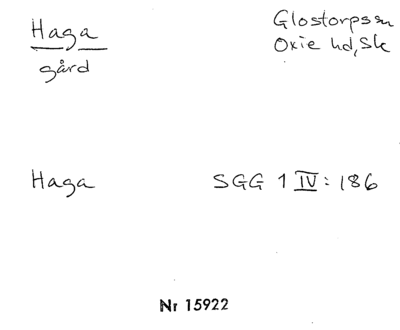 Haga
Glostorpssn
Oxie hd, Sk
gård
Haga
SGG 1 IV: 186
Nr 15922